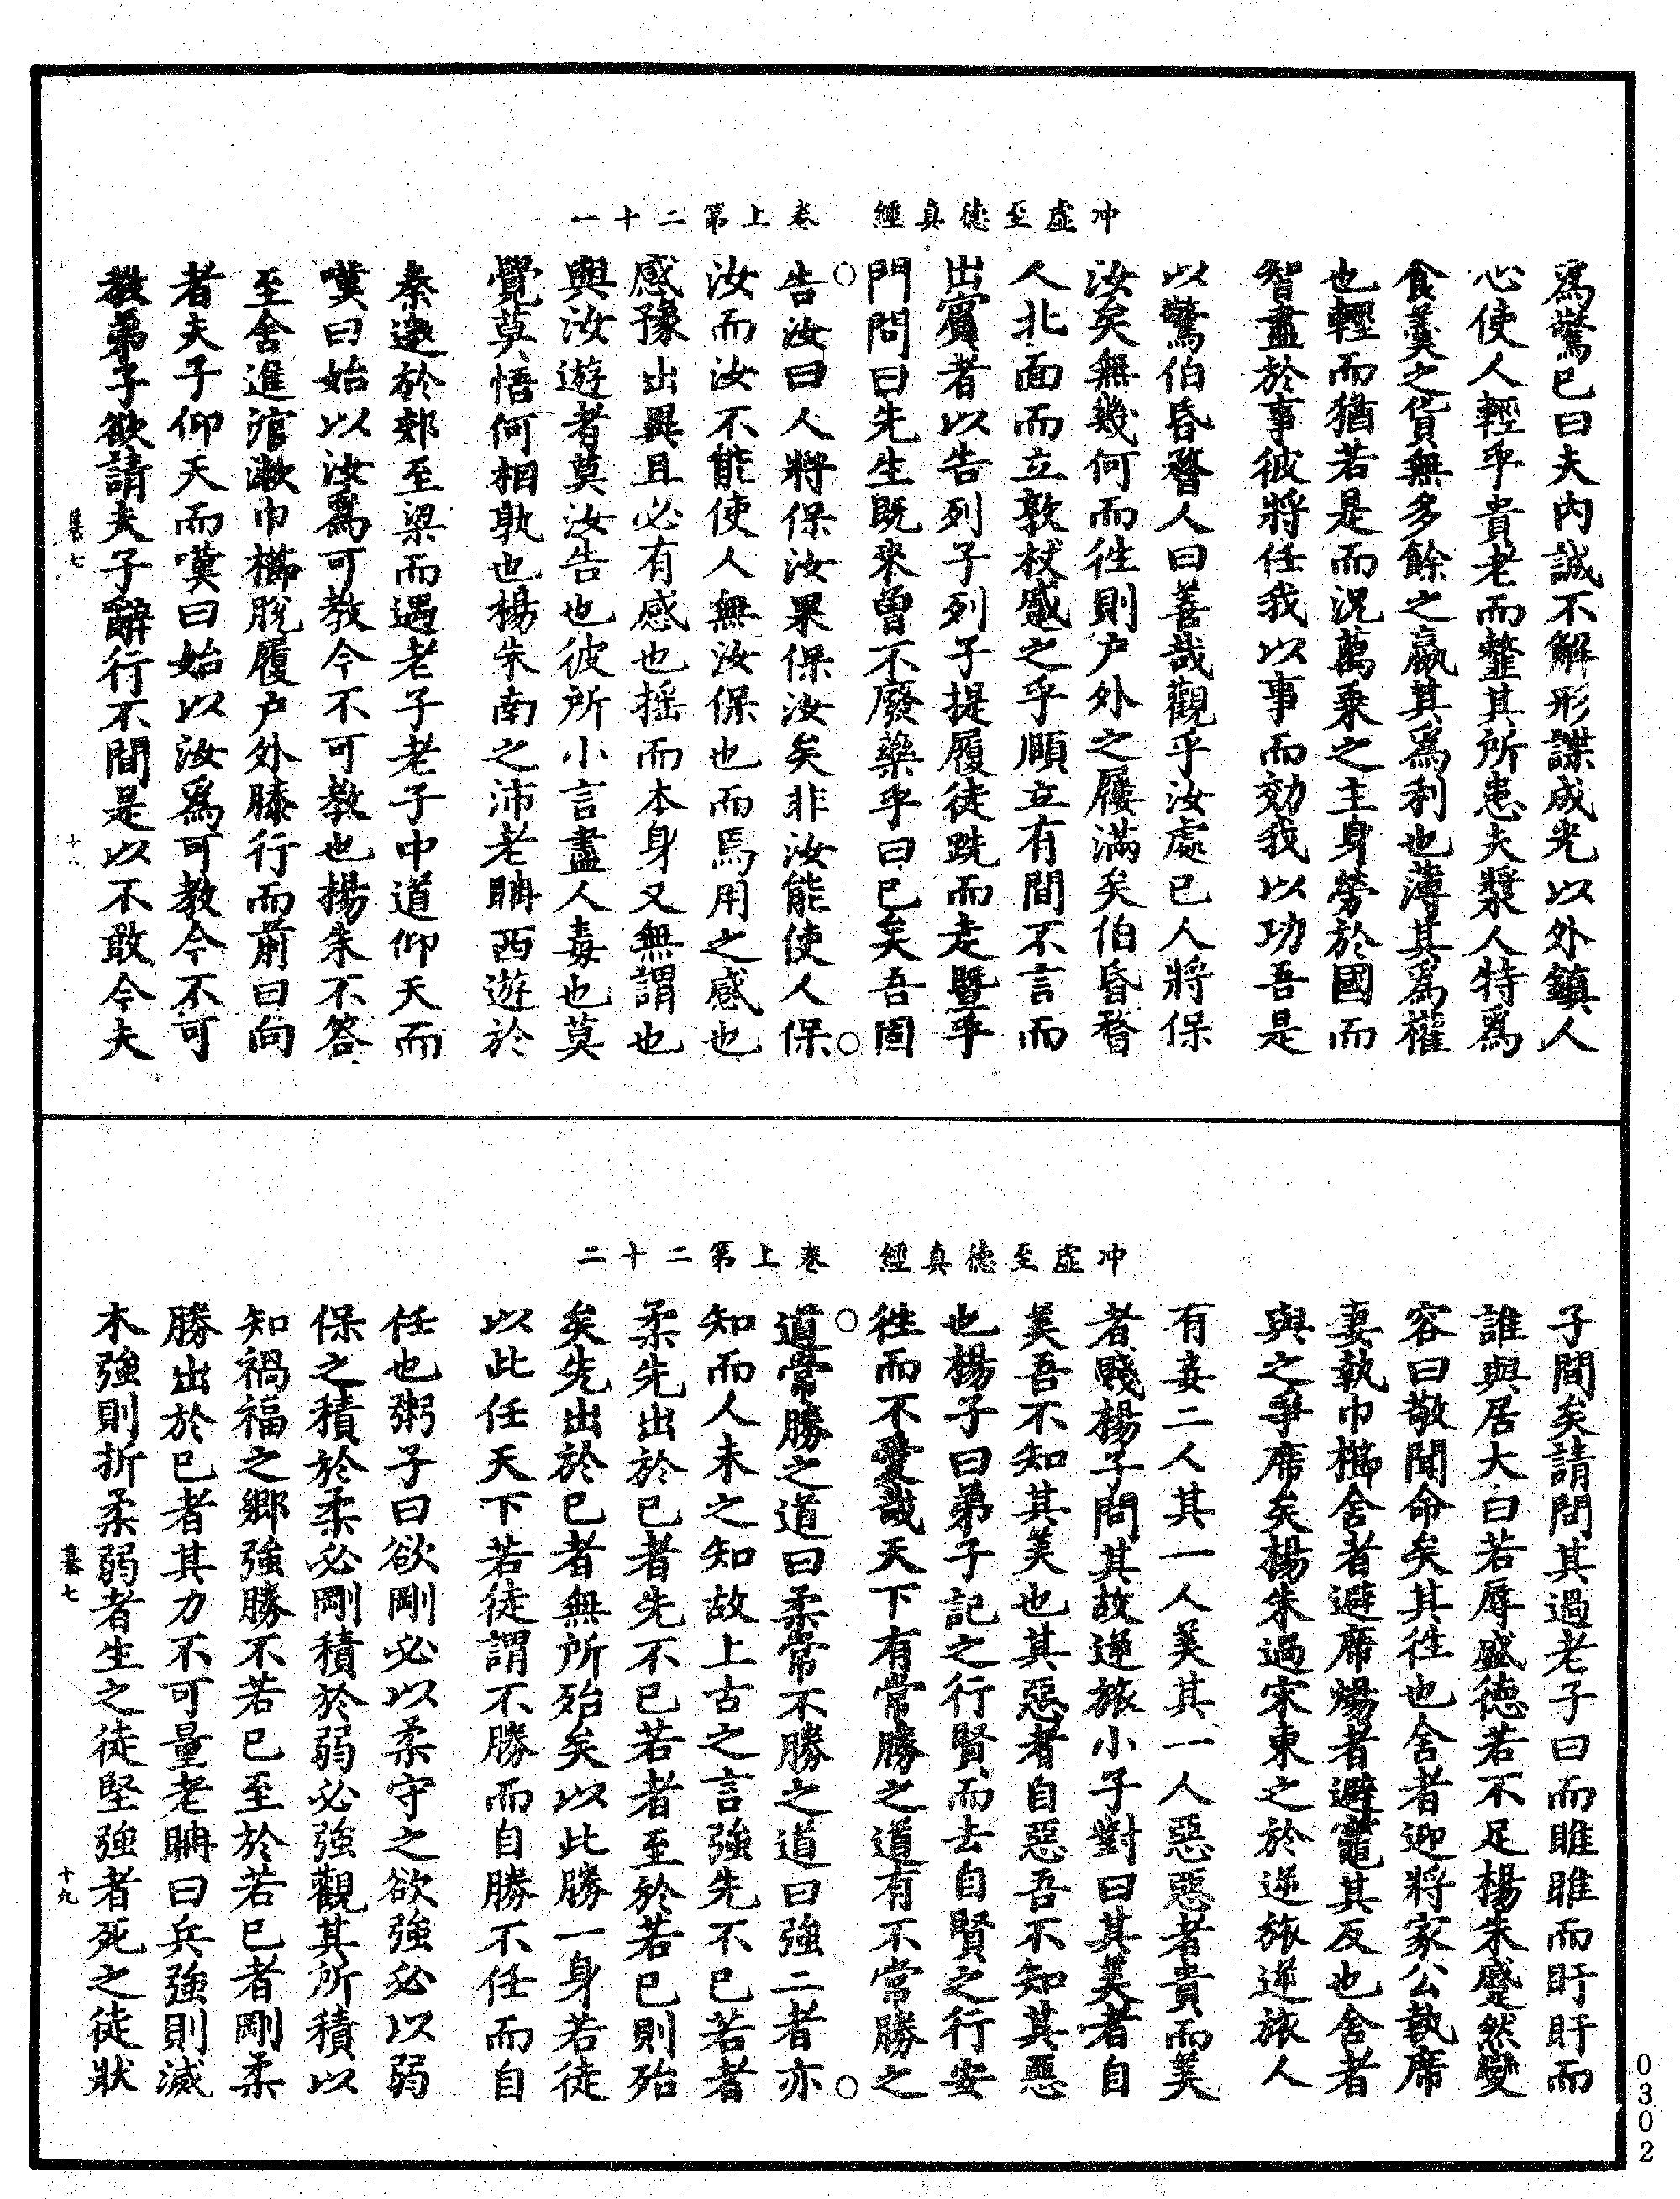 冲虛至德真經　卷上第二十一
爲驚已曰夫內誠不解形諜成光以外鎮人
心使人輕乎貴老而𩐎其所患夫漿人特爲
食羹之貨無多餘之贏其爲利也薄其爲權
也輕而猶若是而況萬乘之主身勞於國而
智盡於事彼將任我以事而効我以功吾是
以驚伯昏瞀人曰善哉觀乎汝處已人將保
汝矣無幾何而徃則户外之屨滿矣伯昏瞀
人北面而立敦杖蹙之乎頤立有間不言而
出賔者以告列子列子提履徒跣而走曁乎
門問曰先生既來曾不廢藥乎曰已矣吾固
告汝曰人將保汝果保汝矣非汝能使人保
汝而汝不能使人無汝保也而焉用之感也
感豫出異且必有感也摇而本身又無謂也
與汝遊者莫汝告也彼所小言盡人毒也莫
覺莫悟何相孰也楊朱南之沛老聃西遊於
秦邀於郊至梁而遇老子老子中道仰天而
嘆曰始以汝爲可教今不可教也楊朱不答
至舍進涫漱巾櫛脫履户外膝行而前曰向
者夫子仰天而嘆曰始以汝爲可教今不可
教弟子欲請夫子辭行不間是以不敢今夫
十八
冲虛至德真經　卷上第二十二
子間矣請問其過老子曰而睢睢而盱盱而
誰與居大白若辱盛德若不足楊朱蹙然變
容曰敬聞命矣其徃也舍者迎將家公執席
妻執巾櫛舍者避席煬者避竈其反也舍者
與之爭席矣楊朱過宋東之於逆旅逆旅人
有妾二人其一人美其一人惡惡者貴而美
者賤楊子問其故逆旅小子對曰其美者自
美吾不知其美也其惡者自惡吾不知其惡
也楊子曰弟子記之行賢而去自賢之行安
徃而不愛哉天下有常勝之道有不常勝之
道常勝之道曰柔常不勝之道曰強二者亦
知而人未之知故上古之言強先不已若者
柔先出於已者先不已若者至於若已則殆
矣先出於已者無所殆矣以此勝一身若徒
以此任天下若徒謂不勝而自勝不任而自
任也粥子曰欲剛必以柔守之欲強必以弱
保之積於柔必剛積於弱必強觀其所積以
知禍福之鄉強勝不若已至於若已者剛柔
勝出於已者其力不可量老聃曰兵強則滅
木強則折柔弱者生之徒堅強者死之徒狀
十九
0302